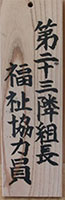 第二十三隣組長
福祉協力員